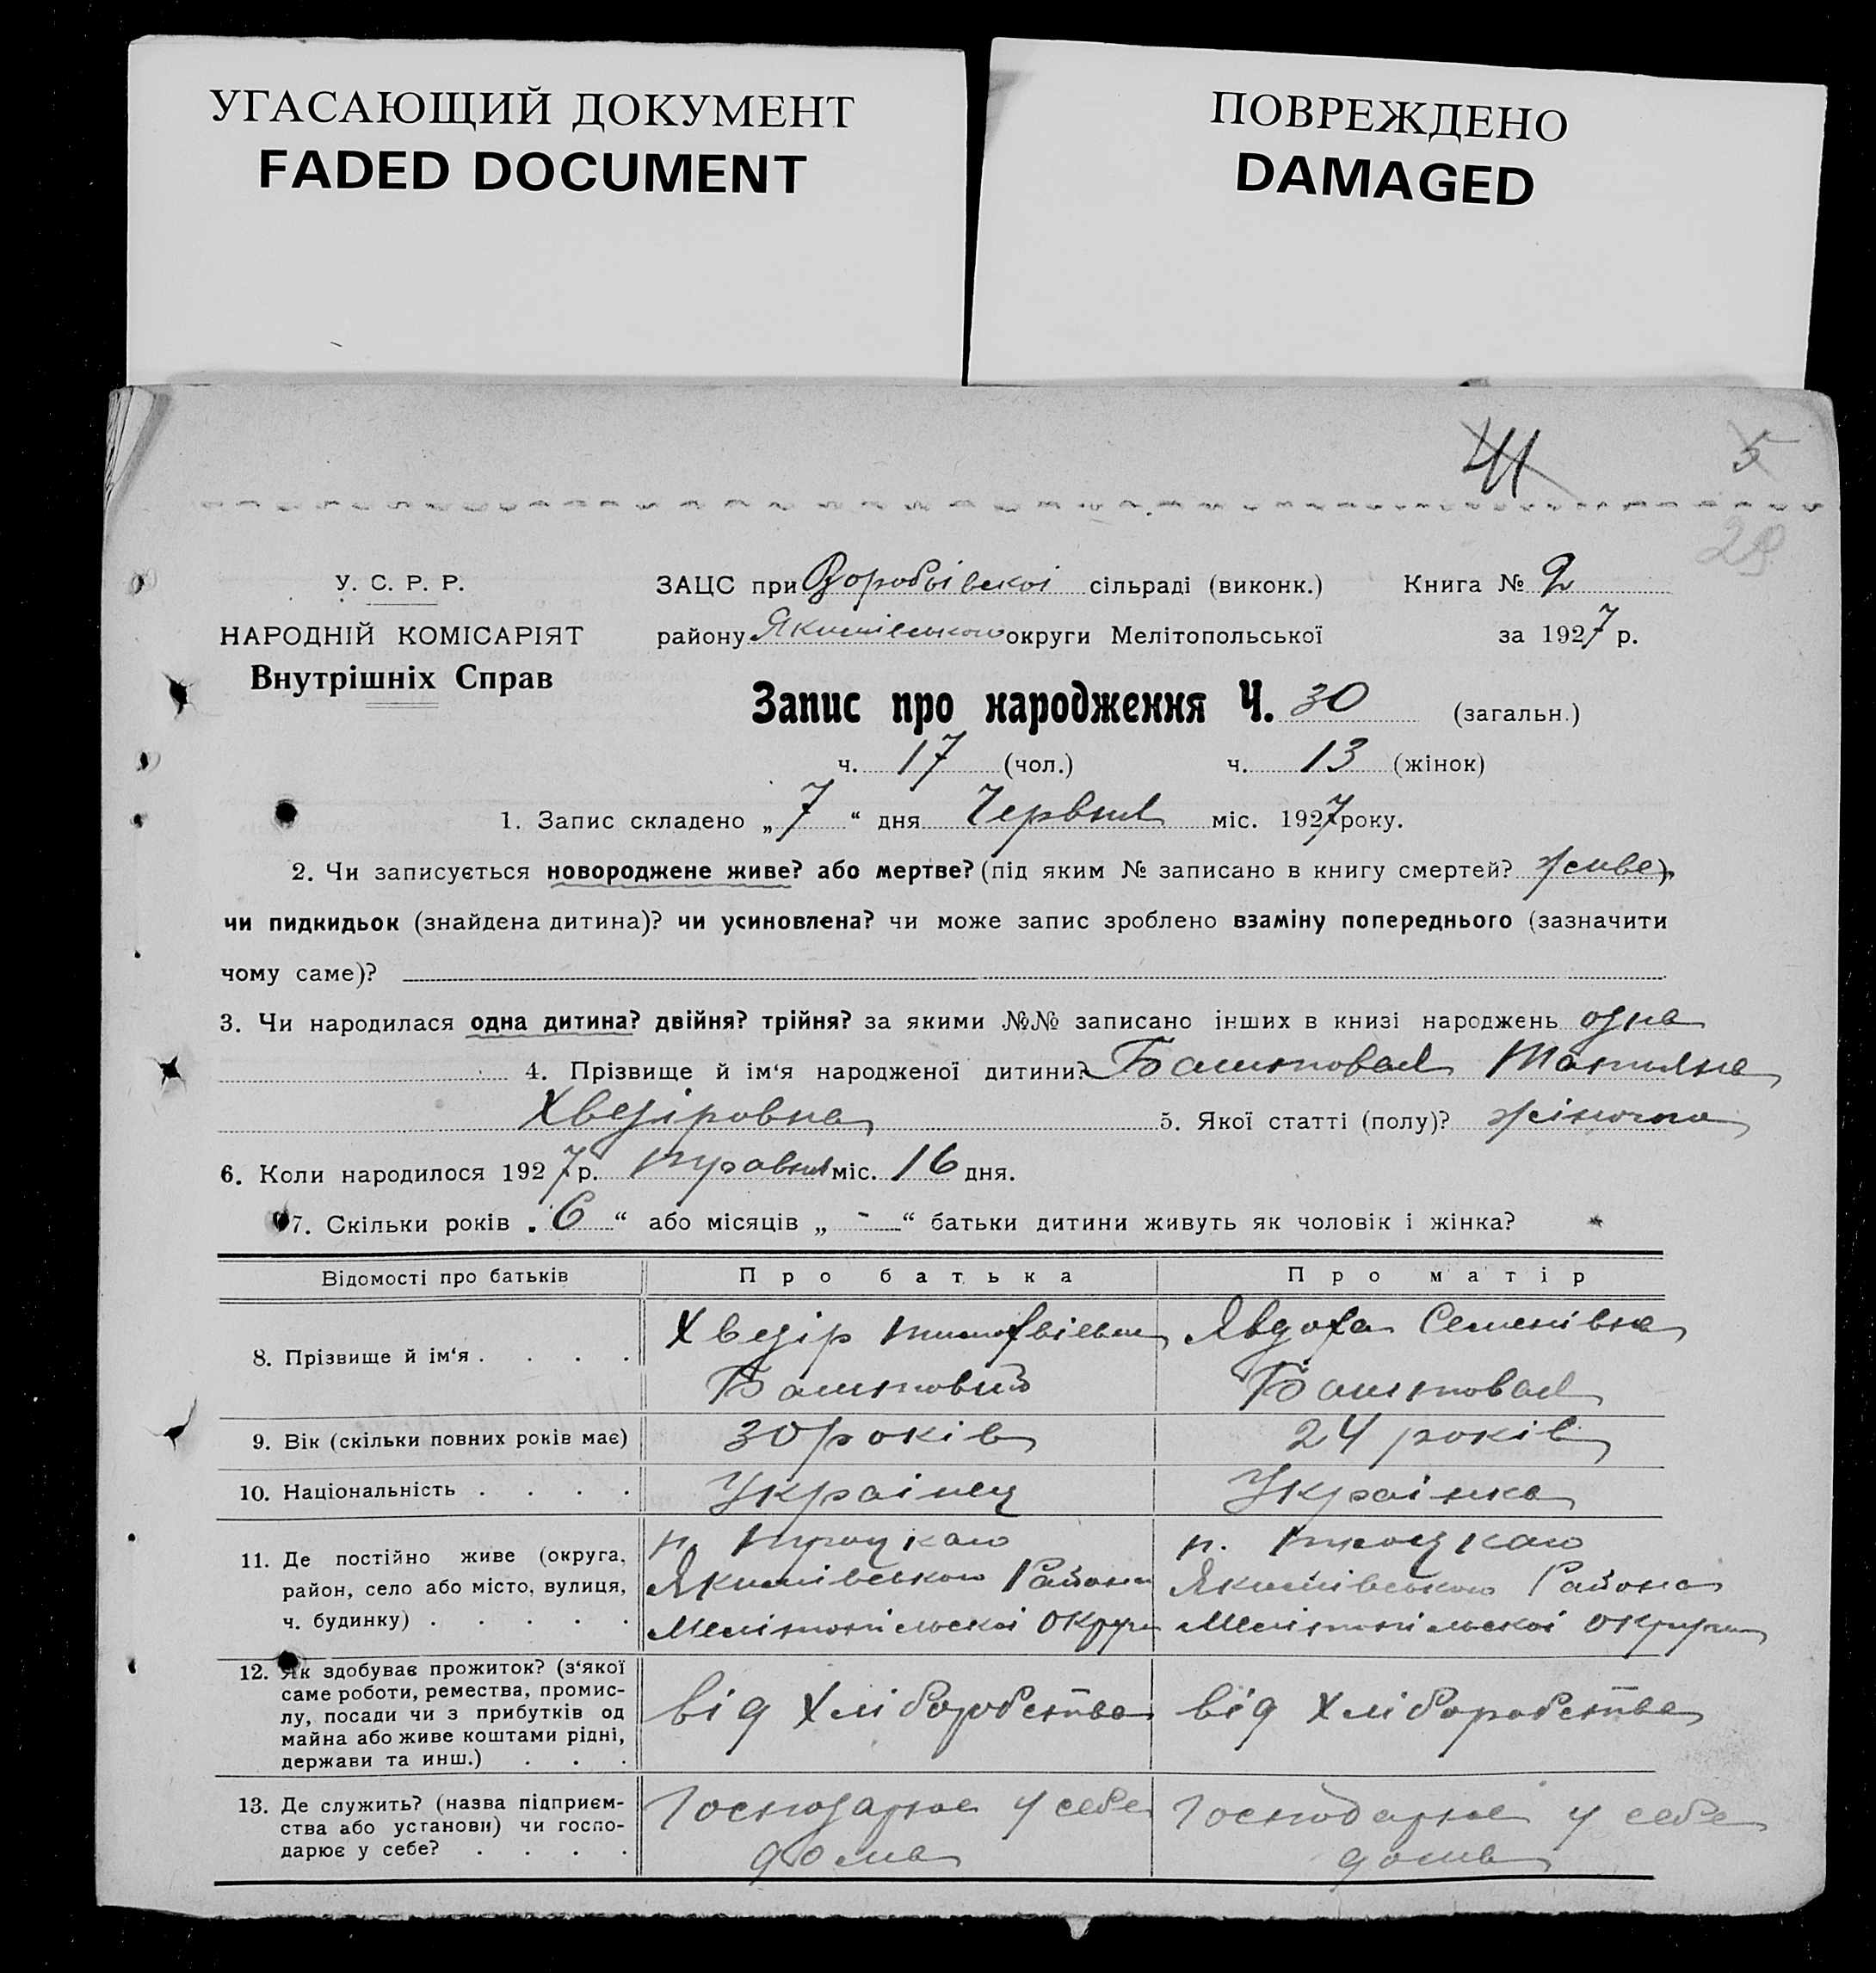 УГАСАЮЩИЙ ДОКУМЕНТ
FADED DOCUMENT
ПОВРЕЖДЕНО
DAMAGED
41
5
28
У. С. Р. Р.
НАРОДНІЙ КОМІСАРІЯТ
Внутрішніх Справ
ЗАЦС при Воробьівскоі сільраді (виконк.) Книга № 2
району Якимівського округи Мелітопольської за 1927 р.
Запис про народження Ч. 30 (загальн.)
ч. 17 (чол.) ч. 13 (жінок)
1. Запис складено „ 7 “ дня Червня міс. 1927 року.
2. Чи записується новороджене живе? або мертве? (під яким № записано в книгу смертей? живе),
чи пидкидьок (знайдена дитина)? чи усиновлена? чи може запис зроблено взаміну попереднього (зазначити
чому саме)?
3. Чи народилася одна дитина? двійня? трійня? за якими №№ записано інших в книзі народжень одна
4. Прізвище й ім‘я народженої дитини? Баштовая Татьяна
Хведіровна 5. Якої статті (полу)? жіночого
6. Коли народилося 1927 р. травня міс. 16 дня.
7. Скільки років „ 6 “ або місяців „ - “ батьки дитини живуть як чоловік і жінка?
Відомості про батьків Про батька Про матір
8. Прізвище й ім‘я . . . .
Хведір Тимофвіевич
Баштовий
Явдоха Семенівна
Баштовая
9. Вік (скільки повних років має) 30 років 24 років
10. Національність . . . . Украінец Украінка
11. Де постійно живе (округа,
район, село або місто, вулиця,
ч. будинку) . . . . .
п. Троцкаго
Якимівського Района
Мелітопільскоі Округи
п. Троцкаго
Якимівського Района
Мелітопільскоі Округи
12. Як здобуває прожиток? (з‘якої
саме роботи, ремества, промис-
лу, посади чи з прибутків од
майна або живе коштами рідні,
держави та инш.) . . .
від Хліборобства
від Хліборобства
13. Де служить? (назва підприєм-
ства або установи) чи госпо-
дарює у себе? . . . .
Господарює у себе
дома
Господарює у себе
дома